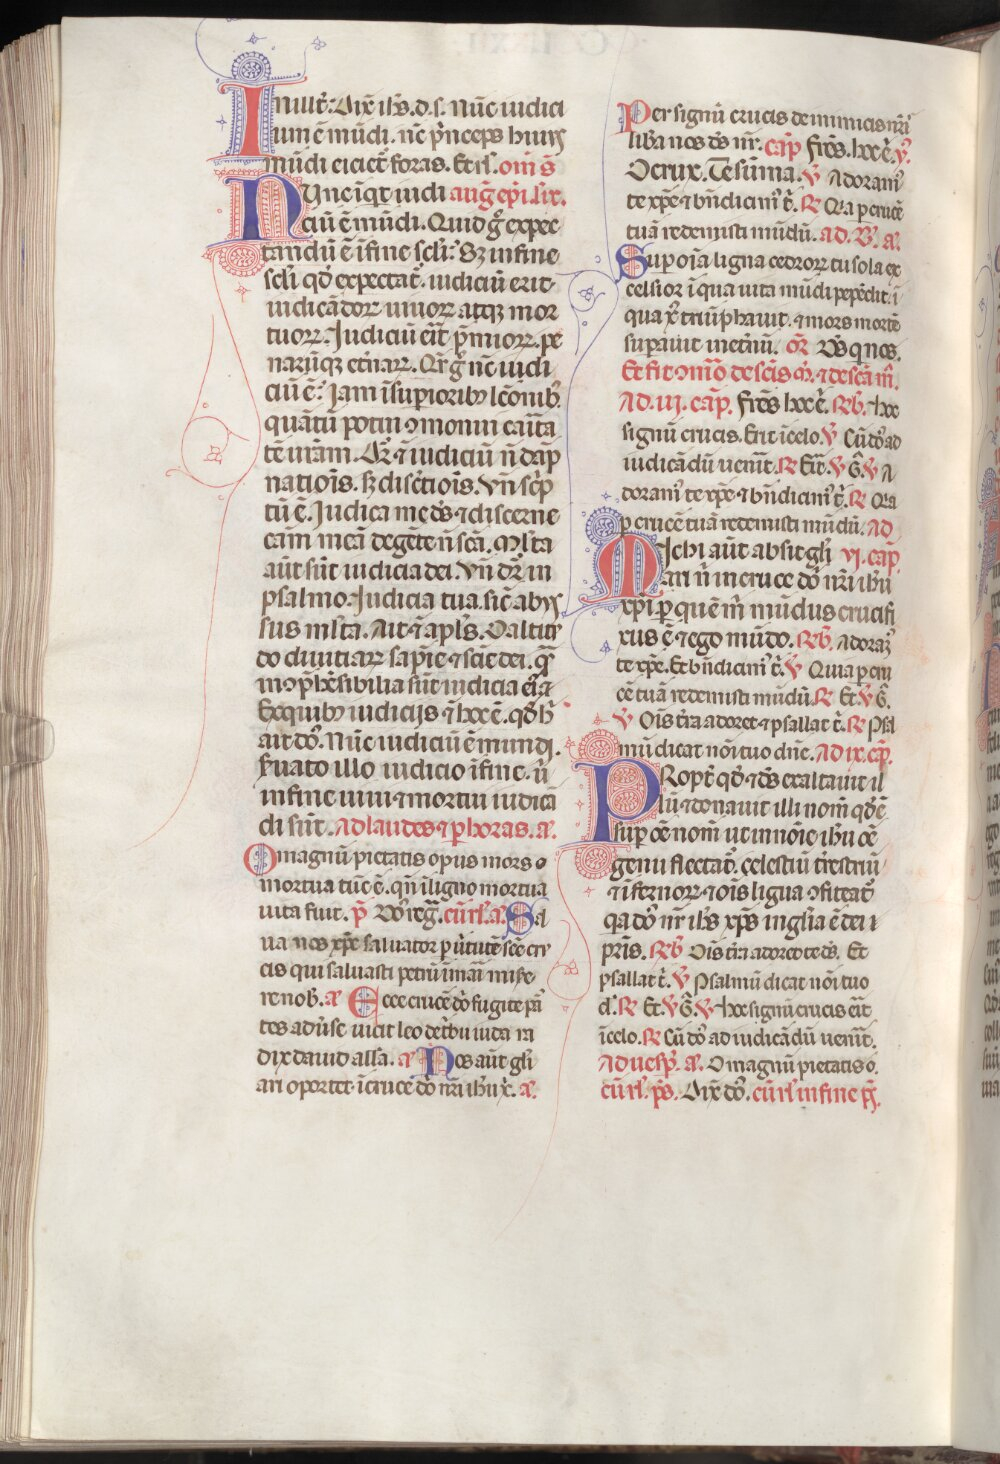 In illo t̄. Dix̄ ih̄s. d. s. nūc iudici
um ē mūdi. nc̄ p̄nceps huiꝰ
mūdi eiciet̄ foras. Et rl̄. om̄ s̄
Nunc inq̄t iudi auḡ epī. lix̄.
ciū ē mūdi. Quid ḡ expec
tandū ē ī fine scl̄i. Sꝫ in fine
scl̄i qd̄ expectat̄. iudiciū erit
iudicādoꝝ uiuoꝝ atqꝫ mor
tuoꝝ. Iudiciū eīt p̄mioꝝ. pe
narūqꝫ et̄naꝝ. Q̄r ḡ nc̄ iudi
ciū ē. Iam ī supioribꝰ lc̄onibꝰ
quātū potui ɔmonui caīta
tē ur̄am.
natiōis. sꝫ discr̄tiōis. Vn̄ sc̄p
tū ē. Iudica me ds̄ ⁊ discerne
cām meā de gēte n̄ scā. Ml̄ta
aūt sūt iudicia dei. Vn̄ dr̄ in
psalmo. Iudicia tua. sic̄ abyꝰ
sus ml̄ta. Ait ⁊ apl̄s. O altitu
do diuitiaꝝ sapīe ⁊ scīe dei. q̄ꝫ
incōp̄hēsibilia sūt iudicia eī⁊
Ex quibꝰ iudicijs ⁊ hoc ē. qd̄ h̄
ait dō. Nūc iudiciū ē mundi.
s̄uato illo iudicio ī fine. ū
in fine uiui ⁊ mortui iudicā
di sūt. Ad laudes ⁊ p horas. a̅.
O magnū pietatis opus mors
mortua tūc ē. qn̄ ī ligno mortua
uita fuit. p̄ Dō reḡ. cūrl̄. a̅. Sal
ua nos xp̄e saluator p ūtutē scē cru
cis qui saluasti petrū ī mari mise
re nob̄. a̅ Ecce crucē dō fugite pā
tes adūse uicit leo de tbu iuda ra
dix dauid all̄a. a̅ Nos aūt gl̄i
ari oportet ī cruce dō nr̄i ih̄u x̄. a̅.
Per signū crucis de inimicis nr̄i
liba nos ds̄ nr̄. cap̄ Frēs. hoc ē. ℣.
O crux. Testīma. ℣ Adoramꝰ
te xp̄e ⁊ bn̄dicimꝰ t̄. ℟ Q̄ia p crucē
tuā redemisti mūdū. ad. B̄. a̅.
Sup oīa ligna cedroꝝ tu sola ex
celsior ī qua uita mūdi pepēdit. ī
qua x̄ triūphauit. ⁊ mors mortē
supauit in etnū. or̄. Ds̄ q nos.
Et fit ɔm̄o de scīs ⁊ de scā m̄.
Ad. iij. cap̄. Frēs hoc ē. ℟b̄. Hoc
signū crucis. Erit ī celo. ℣ Cū dō ad
iudicādū uenīt. ℟ Eīt. ℣ Ḡ. ℣ A
doramꝰ te xp̄e ⁊ bn̄dicimꝰ t̄. ℟ Q̄ia
p crucē tuā redemisti mūdū. ad
Michi aūt absit gl̄i vi. cap̄.
ari n̄ in cruce dō nr̄i ih̄u
xp̄i p quē m̄ mūdus crucifi
xus ē ⁊ ego mūdo. ℟b̄. Adoramꝰ
te xp̄e. Et bn̄dicimꝰ t̄. ℣ Quia p cru
cē tuā redemisti mūdū. ℟ Et. ℣ Ḡ.
℣ Oīs tr̄a adoret ⁊ psallat t̄. ℟ Psl̄
mū dicat nōi tuo dn̄e. Ad ix. cap̄.
Propt̄ qd̄ ⁊ ds̄ exaltauit il
lū ⁊ donauit illi nom̄ qd̄ ē
sup oē nom̄ ut in noīe ih̄u oē
genu flectat̄. celestiū tr̄estriū
⁊ īfernoꝝ ⁊ oīs ligua ɔfiteat̄
q̄a dō nr̄ ih̄s xp̄s in glīa ē dei
pr̄is. ℟b̄ Oīs tr̄a adoret te ds̄. Et
psallat t̄. ℣ Psalmū dicat nōi tuo
d̄. ℟ Et. ℣ Ḡ. ℣ Hoc signū crucis eīt
ī celo. ℟ Cū dō ad iudicādū uenīt.
Ad uesp̄. a̅. O magnū pietatis o.
cūrl̄. ps̄. Dix̄ dō. cūrl̄ in fine p̄.